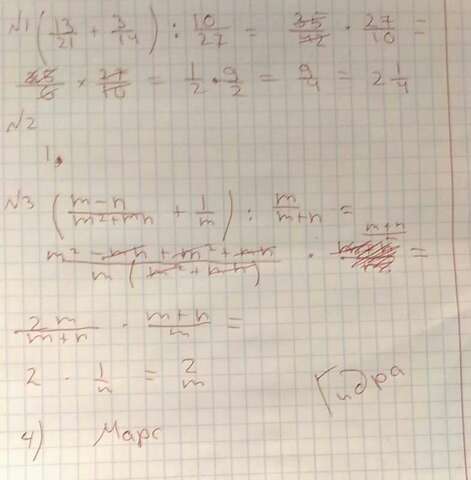 №1 (13/21 + 3/14) : 10/27 = 35/42 · 27/10 =
/6 × 27/10 = 1/2 · 9/2 = 9/4 = 2 1/4
№2
1.
№3 (m-n/m²+mn + 1/m) : m/m+n =
m² - mn + m² + mn / m(m² + mn) · m+n/ =
2m/m+n · m+n/m =
2 · 1/m = 2/m
Гидра
4) Марс